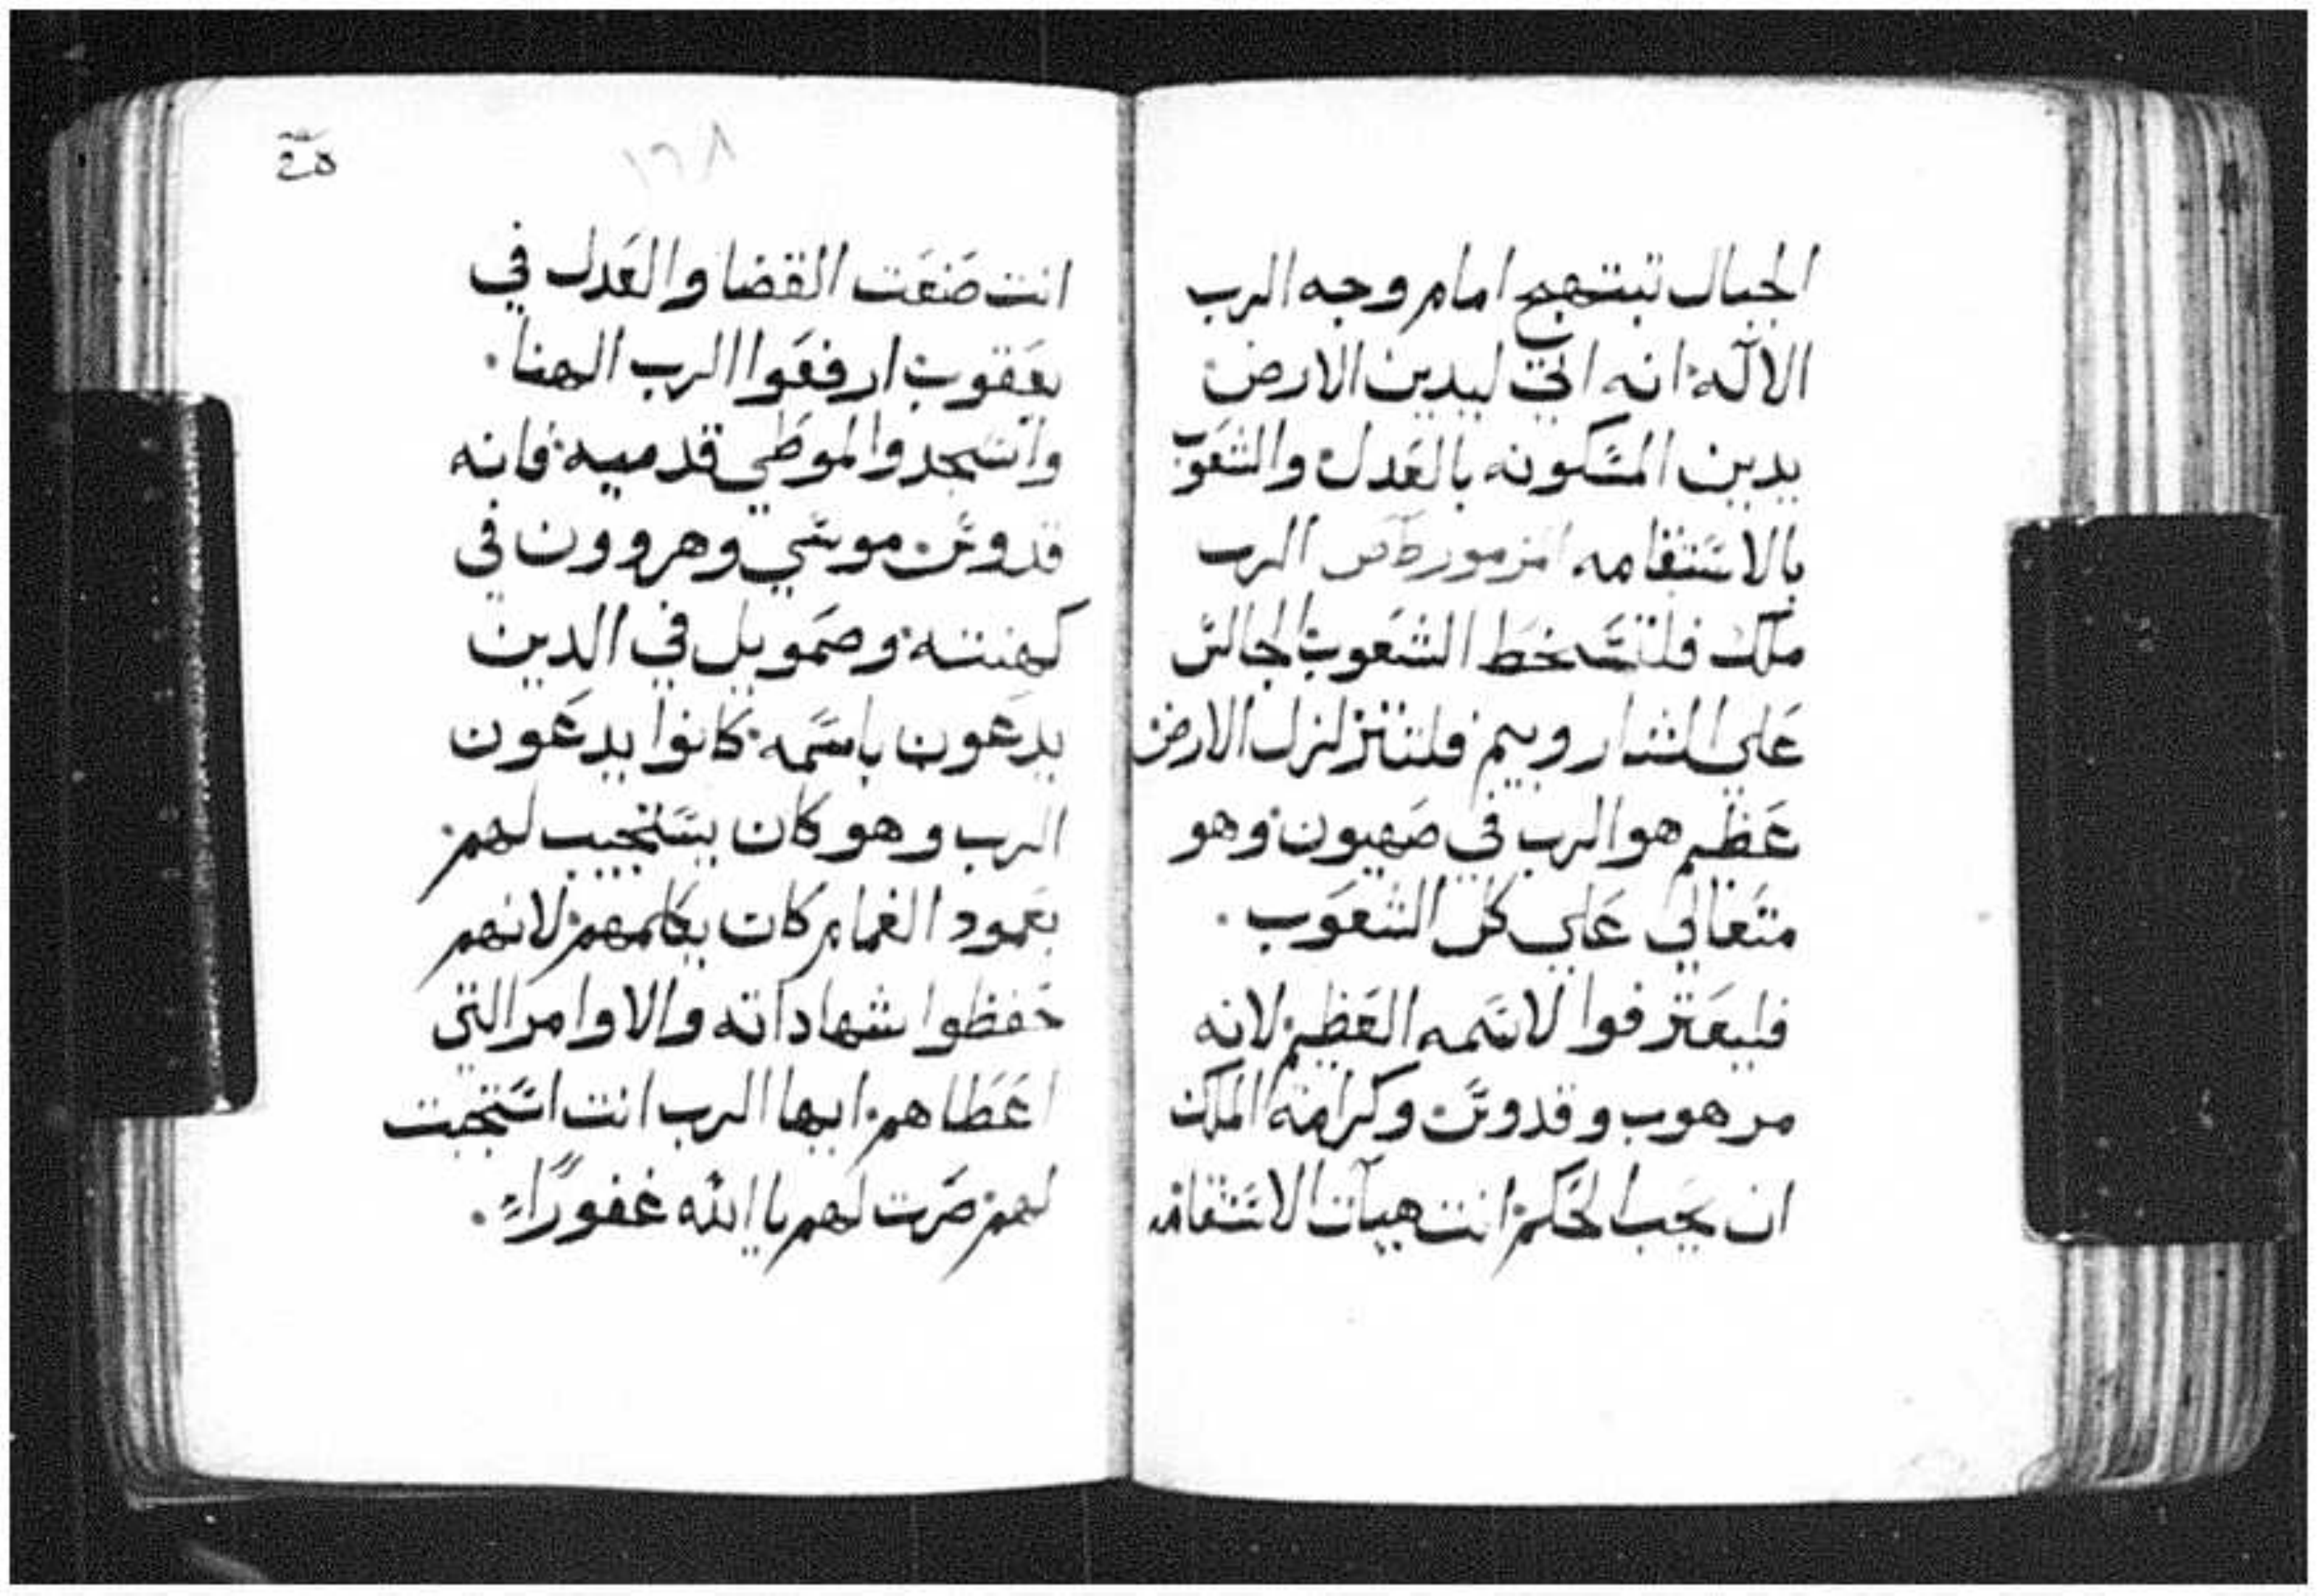 الجبال تبتهج امام وجه الرب
الاله انه اتي ليدين الارض
يدين المسكونه بالعدل والشعوب
بالاستقامه مزمور الرب
ملك فلتسخط الشعوب الجالس
علي الشاروبيم فلتتزلزل الارض
عظيم هو الرب في صهيون وهو
متعالي علي كل الشعوب.
فليعترفوا لاسمه العظيم لانه
مرهوب وقدوس وكرامة الملك
ان يحب الحكم انت هيات الاستقامه
١٦٨
انت صنعت القضا والعدل في
يعقوب ارفعوا الرب الهنا.
واسجدوا لموطي قدميه فانه
قدوس موسي وهروون في
كهنته وصمويل في الدين
يدعون باسمه كانوا يدعون
الرب وهو كان يستجيب لهم
بعمود الغمام كان يكلمهم لانهم
حفظوا شهاداته والاوامر التي
اعطاهم ايها الرب انت استجبت
لهم صرت لهم يا الله غفوراً.